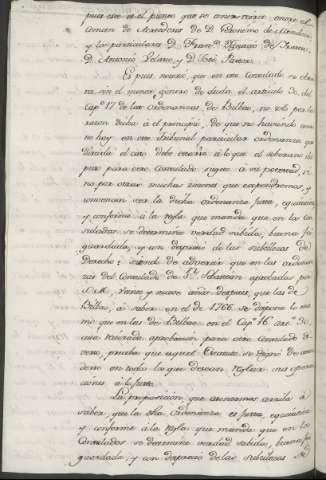 pues este es el punto que se controvierte, entre el
comun de Acredores de D. Geronimo de
y los particulares D. Fran.co Ignacio de
D. Antonio Pelaez, y D. José
Es pues neceso, que en este Consulado se obser
ve, sin el menor genero de duda, el articulo 30, del
Cap.o 17 de las ordenanzas de Bilbao, no solo por la
razon dicha à el principio, de que no haviendo como
no hay en este tribunal particular ordenanza que
decida el caso debe estarse à lo que el soberano dis
puso para otro Consulado sugeto a su potestad, si
no por otras muchas razones que expondremos, y
convencen ser la dicha ordenanza justa, equitativa
y conforme a la regla que manda que en los Con
sulados se determine verdad sabida, buena fé
guardada, y con desprecio de las sutilezas del
Derecho; siendo de advertir que en las ordenan
zas del Consulado de S.n Sebastian aprobadas por
S.M. veinte y nueve años despues, que las de
Bilbao, à saber en el de 1766. se dispone lo mis
mo que en las de Bilbao. en el Cap.o 16. art.o 30,
cuia reiterada aprobacion para otro Consulado di
verso, prueba que aquel Decreto se dirijió
dero en todo lo que desean reglar sus opera
ciones à lo justo.
La proposicion, que asentamos arriba à
saber, que la tal Ordenanza es justa, equitativa
y conforme á la regla que manda que en los
Consulados se determine verdad sabida, buena fe
guardada, y con desprecio de las sutilezas del